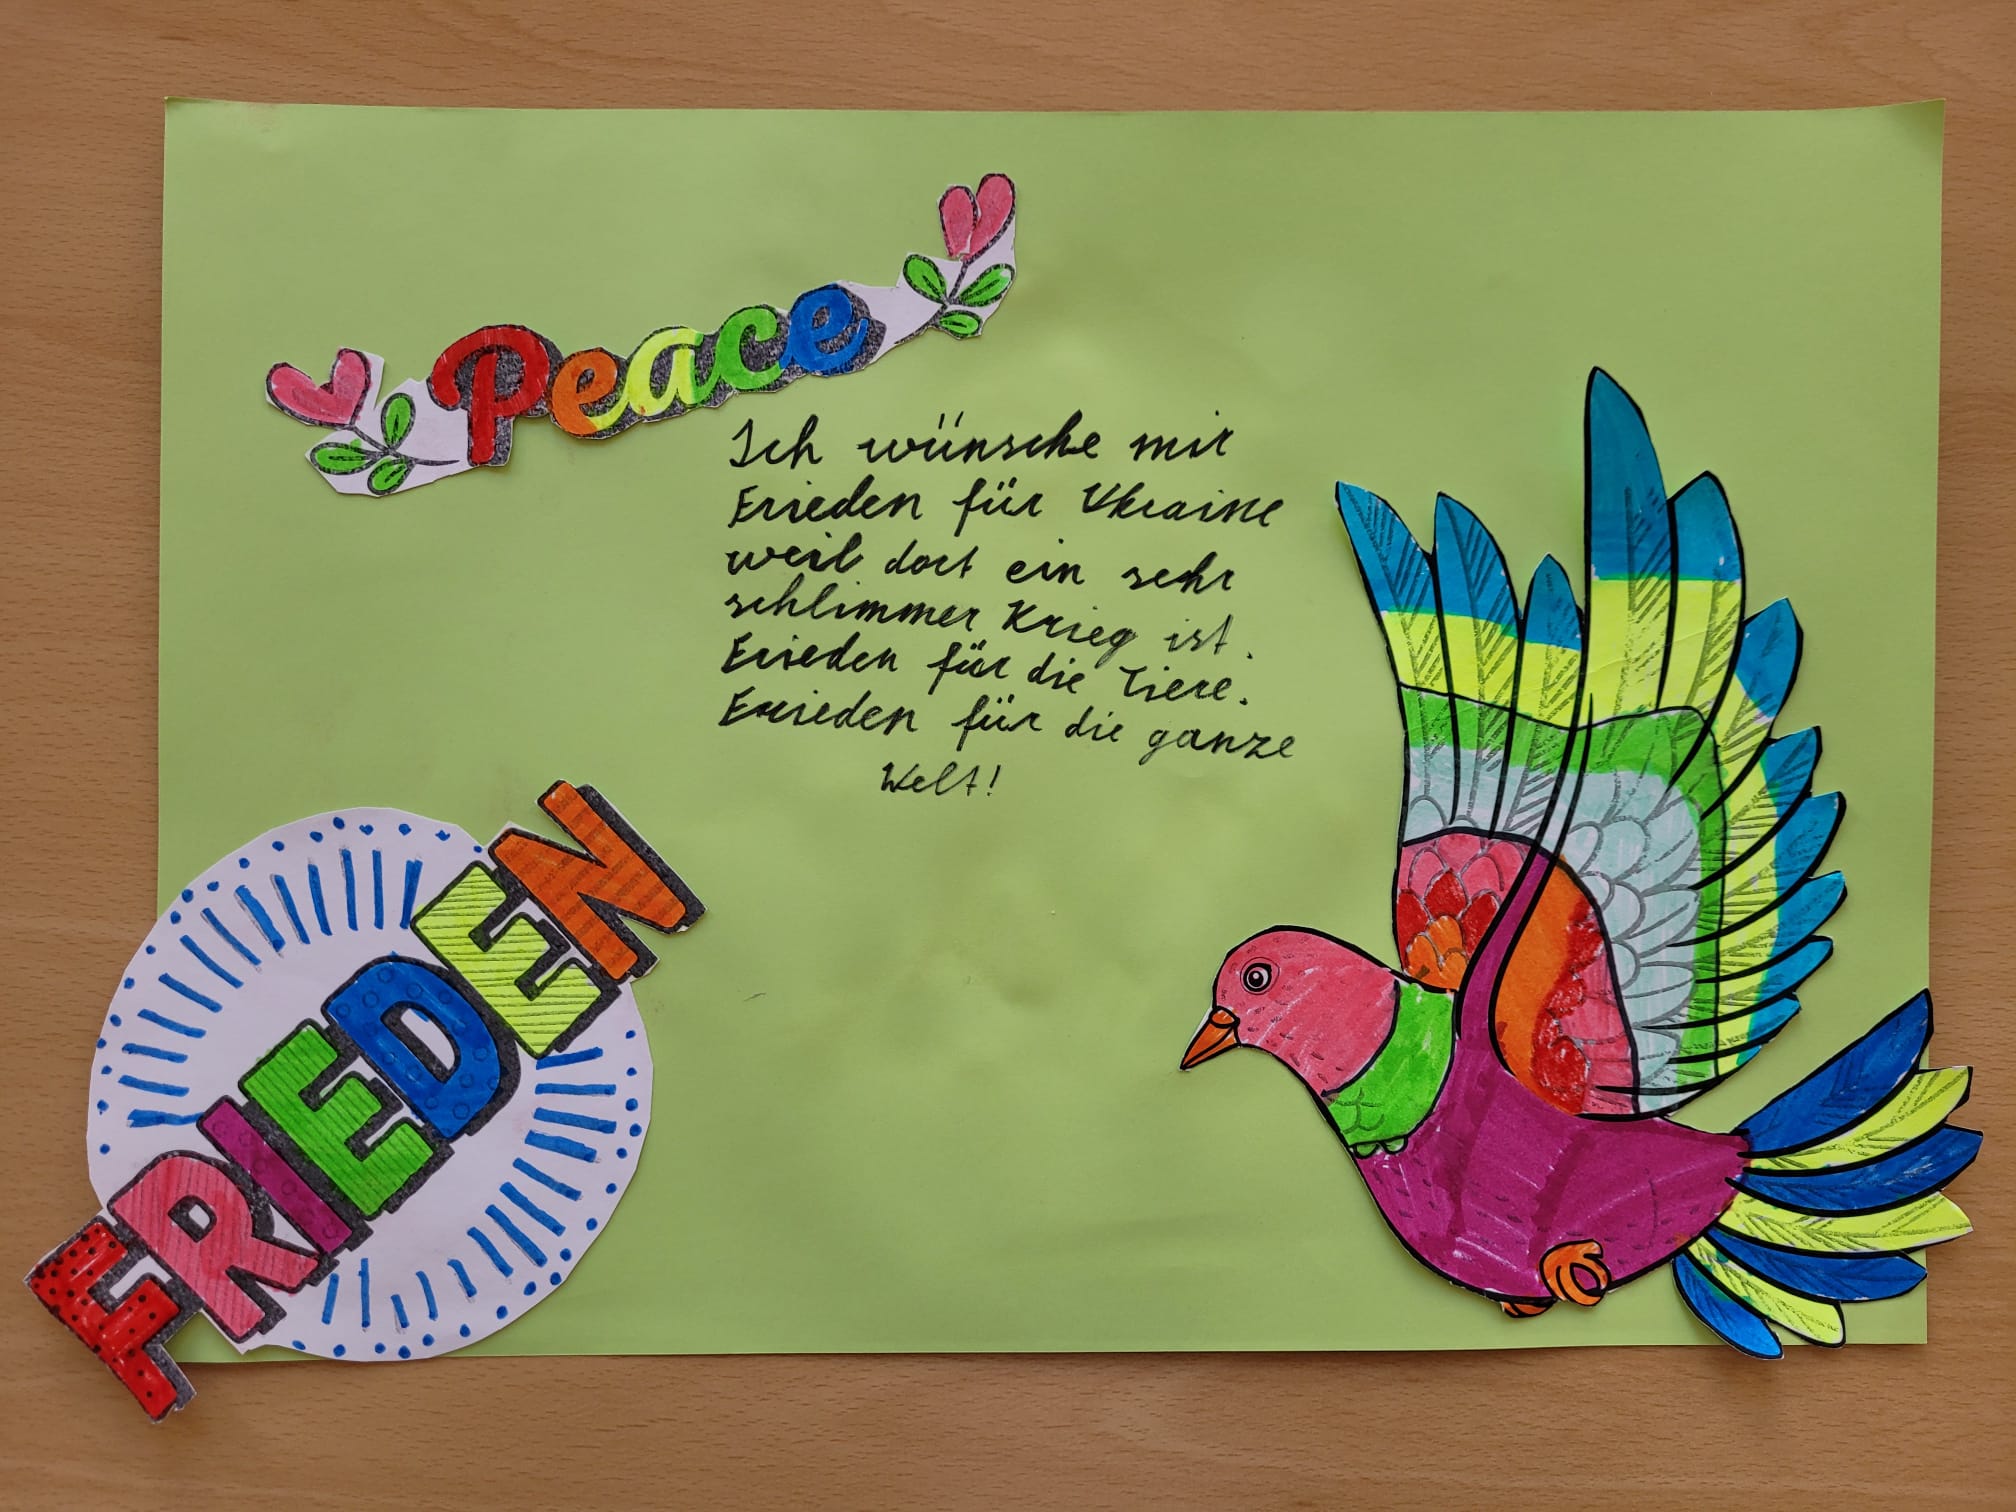 Peace
Ich wünsche mir
Frieden für Ukraine
weil dort ein sehr
schlimmer Krieg ist.
Frieden für die Tiere.
Frieden für die ganze
Welt!
FRIEDEN